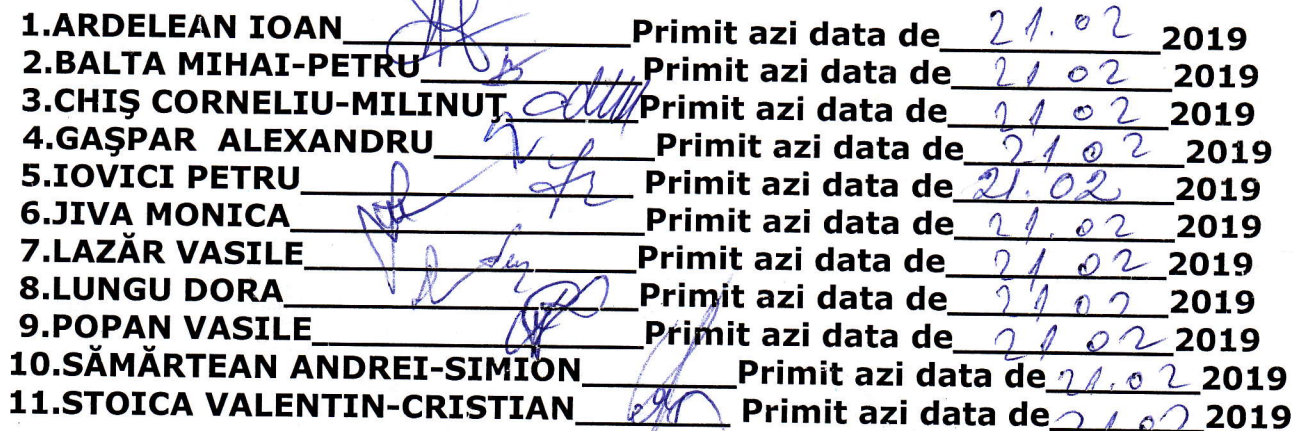 1.ARDELEAN IOAN Primit azi data de 21.02 2019
2.BALTA MIHAI-PETRU Primit azi data de 21 02 2019
3.CHIŞ CORNELIU-MILINUŢ Primit azi data de 21 02 2019
4.GAŞPAR ALEXANDRU Primit azi data de 21 02 2019
5.IOVICI PETRU Primit azi data de 21.02 2019
6.JIVA MONICA Primit azi data de 21.02 2019
7.LAZĂR VASILE Primit azi data de 21 02 2019
8.LUNGU DORA Primit azi data de 21 02 2019
9.POPAN VASILE Primit azi data de 21 02 2019
10.SĂMĂRTEAN ANDREI-SIMION Primit azi data de 21.02 2019
11.STOICA VALENTIN-CRISTIAN Primit azi data de 21.02 2019